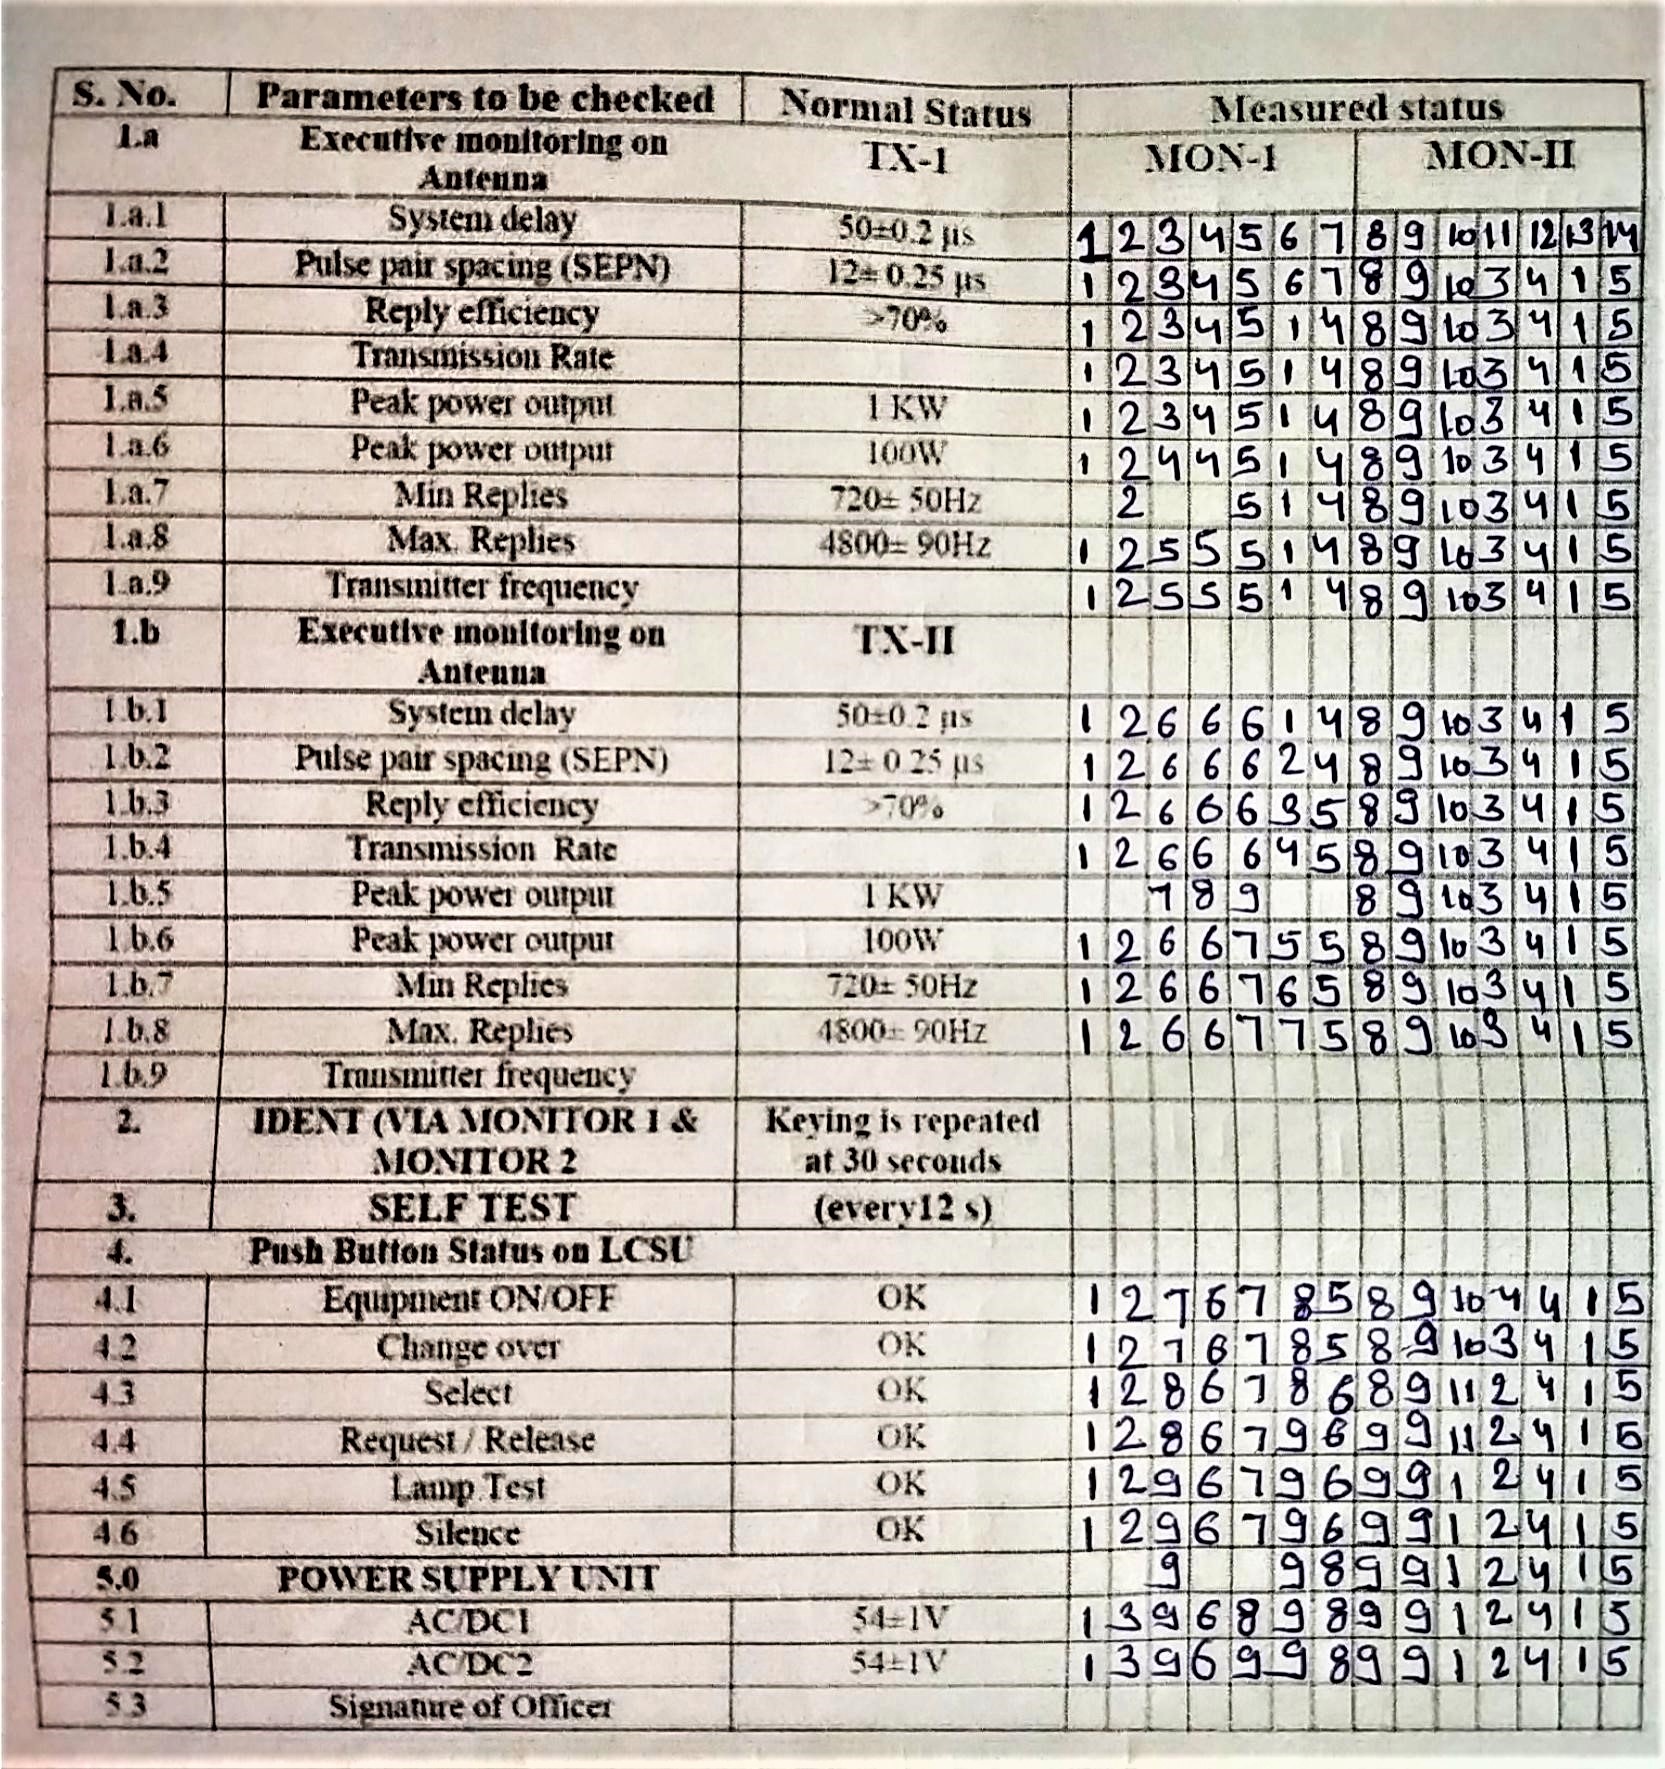 S. No. Parameters to be checked Normal Status Measured status
1.a Executive monitoring on Antenna TX-1 MON-1 MON-II
1.a.1 System delay 50±0.2 µs 1 2 3 4 5 6 7 8 9 10 11 12 13 14
1.a.2 Pulse pair spacing (SEPN) 12± 0.25 µs 1 2 3 4 5 6 7 8 9 10 3 4 1 5
1.a.3 Reply efficiency >70% 1 2 3 4 5 1 4 8 9 10 3 4 1 5
1.a.4 Transmission Rate 1 2 3 4 5 1 4 8 9 10 3 4 1 5
1.a.5 Peak power output 1 KW 1 2 3 4 5 1 4 8 9 10 3 4 1 5
1.a.6 Peak power output 100W 1 2 4 4 5 1 4 8 9 10 3 4 1 5
1.a.7 Min Replies 720± 50Hz 2 5 1 4 8 9 10 3 4 1 5
1.a.8 Max. Replies 4800± 90Hz 1 2 5 5 5 1 4 8 9 10 3 4 1 5
1.a.9 Transmitter frequency 1 2 5 5 5 1 4 8 9 10 3 4 1 5
1.b Executive monitoring on Antenna TX-II
1.b.1 System delay 50±0.2 µs 1 2 6 6 6 1 4 8 9 10 3 4 1 5
1.b.2 Pulse pair spacing (SEPN) 12± 0.25 µs 1 2 6 6 6 2 4 8 9 10 3 4 1 5
1.b.3 Reply efficiency >70% 1 2 6 6 6 3 5 8 9 10 3 4 1 5
1.b.4 Transmission Rate 1 2 6 6 6 4 5 8 9 10 3 4 1 5
1.b.5 Peak power output 1 KW 7 8 9 8 9 10 3 4 1 5
1.b.6 Peak power output 100W 1 2 6 6 7 5 5 8 9 10 3 4 1 5
1.b.7 Min Replies 720± 50Hz 1 2 6 6 7 6 5 8 9 10 3 4 1 5
1.b.8 Max. Replies 4800± 90Hz 1 2 6 6 7 7 5 8 9 10 3 4 1 5
1.b.9 Transmitter frequency
2. IDENT (VIA MONITOR 1 & MONITOR 2 Keying is repeated at 30 seconds
3. SELF TEST (every12 s)
4. Push Button Status on LCSU
4.1 Equipment ON/OFF OK 1 2 7 6 7 8 5 8 9 10 4 4 1 5
4.2 Change over OK 1 2 7 6 7 8 5 8 9 10 3 4 1 5
4.3 Select OK 1 2 8 6 7 8 6 8 9 11 2 4 1 5
4.4 Request / Release OK 1 2 8 6 7 9 6 9 9 11 2 4 1 5
4.5 Lamp Test OK 1 2 9 6 7 9 6 9 9 1 2 4 1 5
4.6 Silence OK 1 2 9 6 7 9 6 9 9 1 2 4 1 5
5.0 POWER SUPPLY UNIT 9 9 8 9 9 1 2 4 1 5
5.1 AC/DC1 54±1V 1 3 9 6 8 9 8 9 9 1 2 4 1 5
5.2 AC/DC2 54±1V 1 3 9 6 9 9 8 9 9 1 2 4 1 5
5.3 Signature of Officer